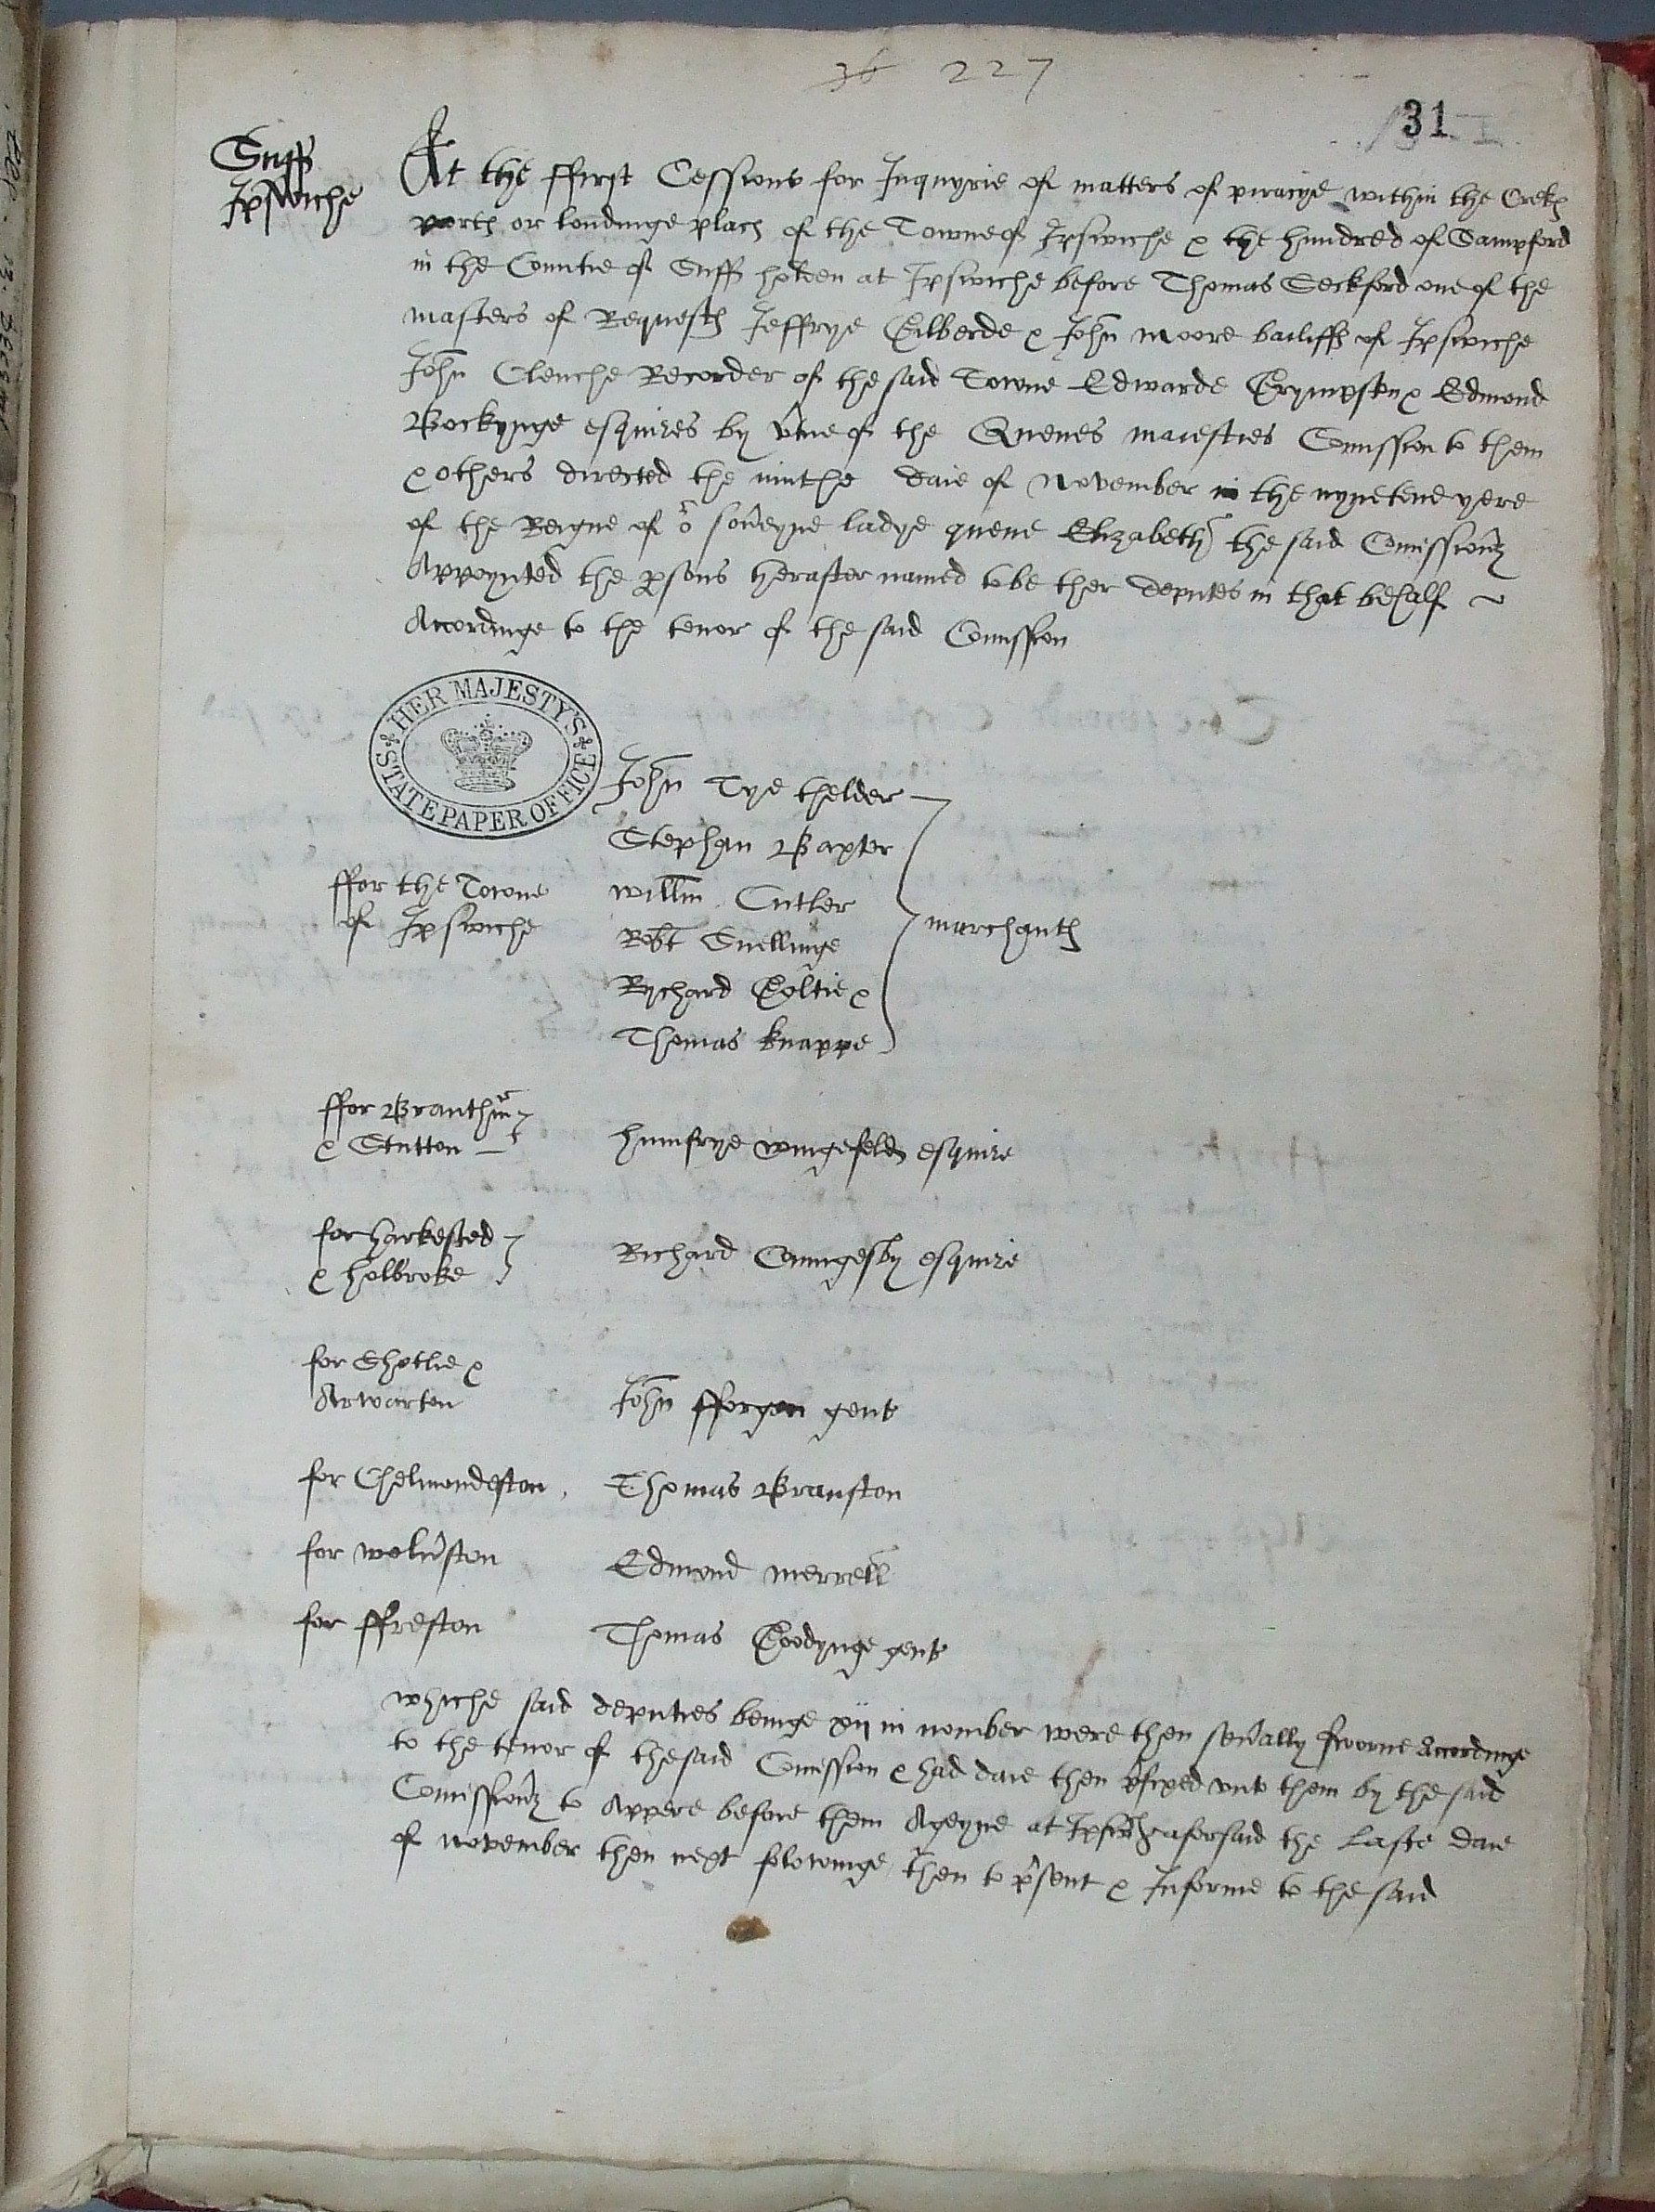 36 227
31
Suff
Ipswiche
At the ffirst Cessions for Inquyrie of matters of piracye within the Creke
porte or londinge place of the Towne of Ipswiche & the hundred of Sampford
in the Countie of Suff holden at Ipswiche before Thomas Seckford one of the
masters of Requeste Jeffrye Gilberde & John Moore bailiffs of Ipswiche
John Clenche Recorder of the said Towne Edwarde Grympston & Edmond
Bockynge esquires by vtue of the Quenes maiesties Comission to them
& others directed the ninthe daie of November in the nynetene yere
of the Reigne of or sovereyne ladye quene Elizabeth the said Comissiorz
Appoynted the psons herafter named to be ther deputes in that behalf
Accordinge to the tenor of the said Comission
HER MAJESTY'S
STATE PAPER OFFICE
John Tye thelder
Stephan Baxter
ffor the Towne
of Ipswiche
willm Cutler
Robt Snellinge
marchante
Rychard Goltie &
Thomas knappe
ffor Branthm
& Stutton
humfrye wingefeld esquire
for harkested
& holbroke
Richard Conningesby esquire
for Shotlie &
Arwarton
John fforgon gent
for Chelmondeston
Thomas Branston
for wolvston
Edmond merrell
for ffreston
Thomas Goodynge gent
whiche said deputies beinge xij in nomber were then sevally sworne Accordinge
to the tenor of the said Comission & had daie then pfixed vnto them by the said
Comissiorz to Appere before them Ageyne at Ipswch aforsaid the laste daie
of november then next folowinge then to psent & Informe to the said